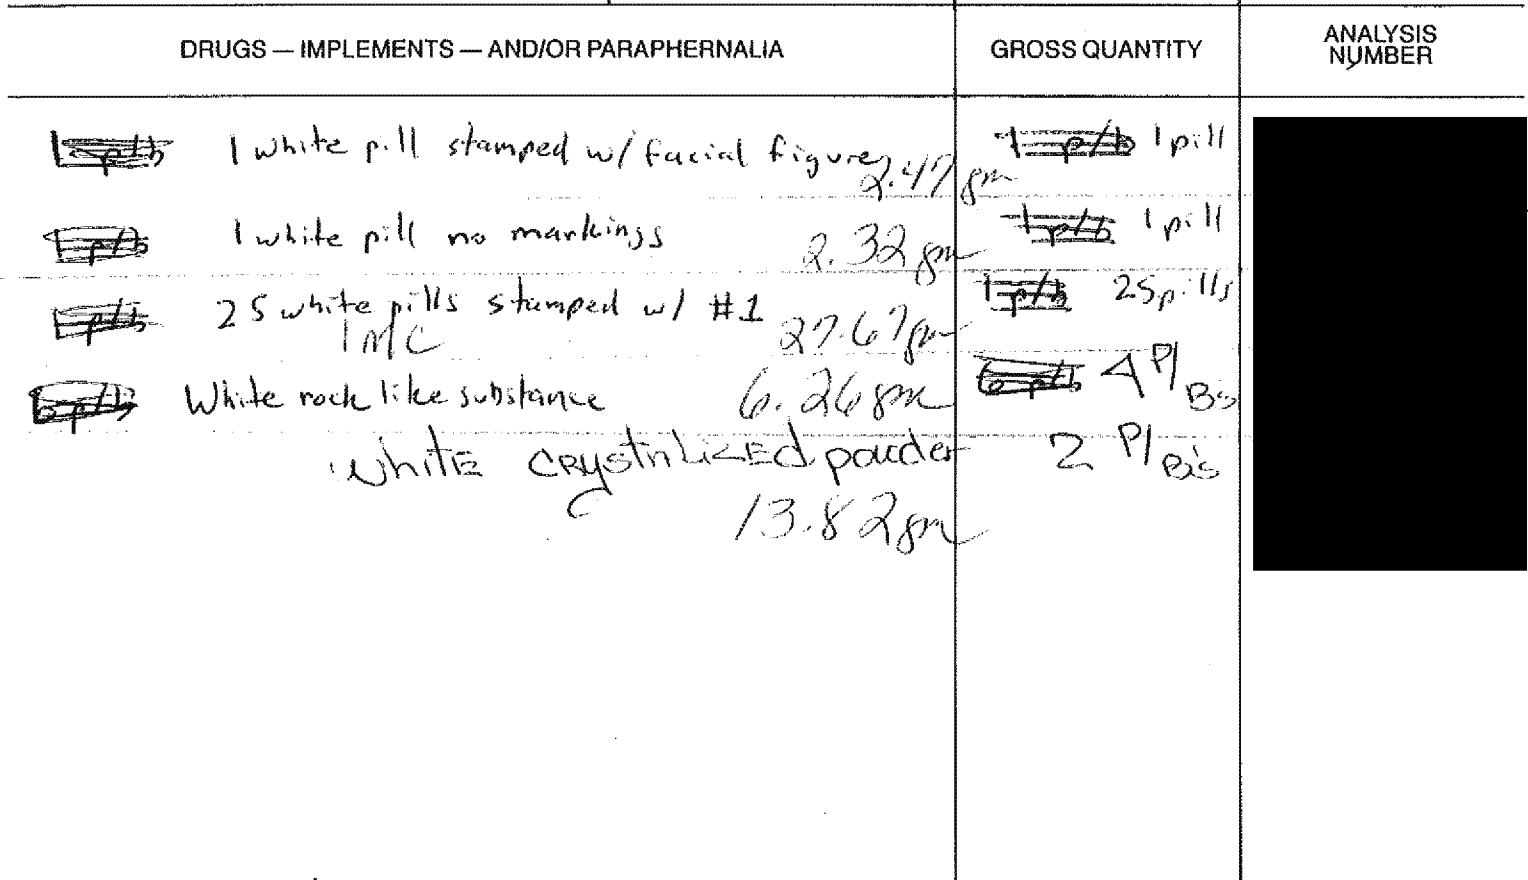 DRUGS — IMPLEMENTS — AND/OR PARAPHERNALIA GROSS QUANTITY ANALYSIS NUMBER
1 p/b 1 white pill stamped w/ facial figure 2.47 gm 1 p/b 1 pill
1 p/b 1 white pill no markings 2.32 gm 1 p/b 1 pill
1 p/b 25 white pills stamped w/ #1 27.67 gm 1 p/b 25 pills
1 MC
6 p/b White rock like substance 6.26 gm 6 p/b 4 P/Bs
WhitE CRystaLizEd powder 2 P/Bs
13.82 gm